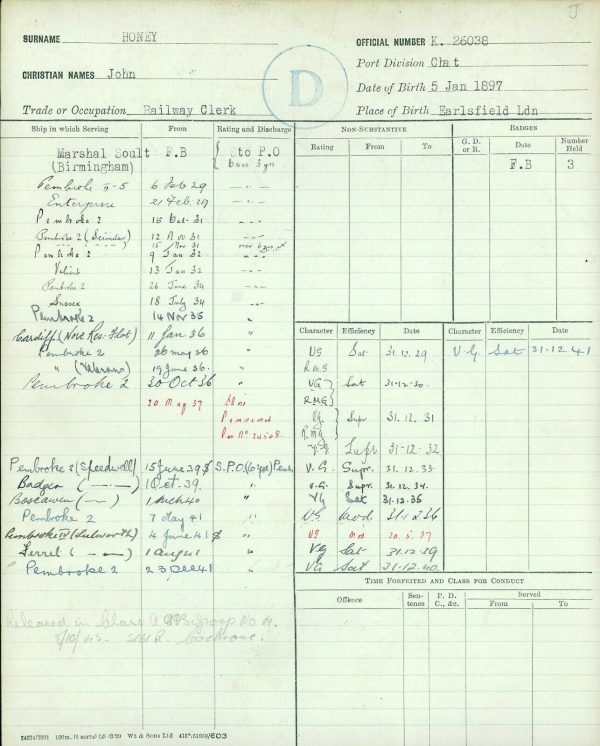 J
SURNAME HONEY OFFICIAL NUMBER K. 26038
Port Division Chat
CHRISTIAN NAMES John
Date of Birth 5 Jan 1897
D
Trade or Occupation Railway Clerk Place of Birth Earlsfield Ldn
Ship in which Serving From Rating and Discharge
Marshal Soult F.B Sto P.O
(Birmingham) over 3 yrs
Pembroke II-5 6 Feb 29 — " —
Enterprise 21 Feb 29 — " —
Pembroke 2 15 Oct 31 — " —
Pembroke 2 ( 12 Nov 31 — " —
15 Nov 31 over 6 yrs
Pembroke 2 9 Jan 32 — " —
Valiant 13 Jan 32 — " —
Pembroke 2 26 June 34 — " —
Sussex 18 July 34 — " —
Pembroke 2 14 Nov 35 "
Cardiff (Nore Res. Flot) 11 Jan 36 "
Pembroke 2 26 May 36 "
" ( 19 June 36 "
Pembroke 2 20 Oct 36 "
20 May 37
Pensioned
Pembroke 2 (Speedwell) 15 June 39 S.P.O. (6 yrs) Pens
Badger ( — — — ) 1 Oct. 39. "
Boscawen ( — — ) 40 "
Pembroke 2 7 May 41 "
Pembroke IV (Lulworth) 4 June 41 "
Ferret ( — — ) 1 Aug "
" Pembroke 2 23 Dec 41 "
Released in Class A Group No
8/10/45
NON-SUBSTANTIVE
Rating From To
BADGES
G. D. or R. Date Number Held
F.B 3
Character Efficiency Date Character Efficiency Date
VG Sat 31.12.29 V.G Sat 31.12.41
R.M.G
VG Sat 31-12-30
R.M.G
VG Supr 31.12.31
R.M.G
VG Supr 31-12-32
V.G. Supr. 31.12.33
V.G. Supr. 31.12.34
VG Sat 31.12.35
VG Mod. 31.12.36
VG Mod 20.5.37
VG Sat 31.12.39
VG Sat 31.12.40
TIME FORFEITED AND CLASS FOR CONDUCT
Offence Sentence P. D. C., &c. Served
From To
Wt & Sons Ltd